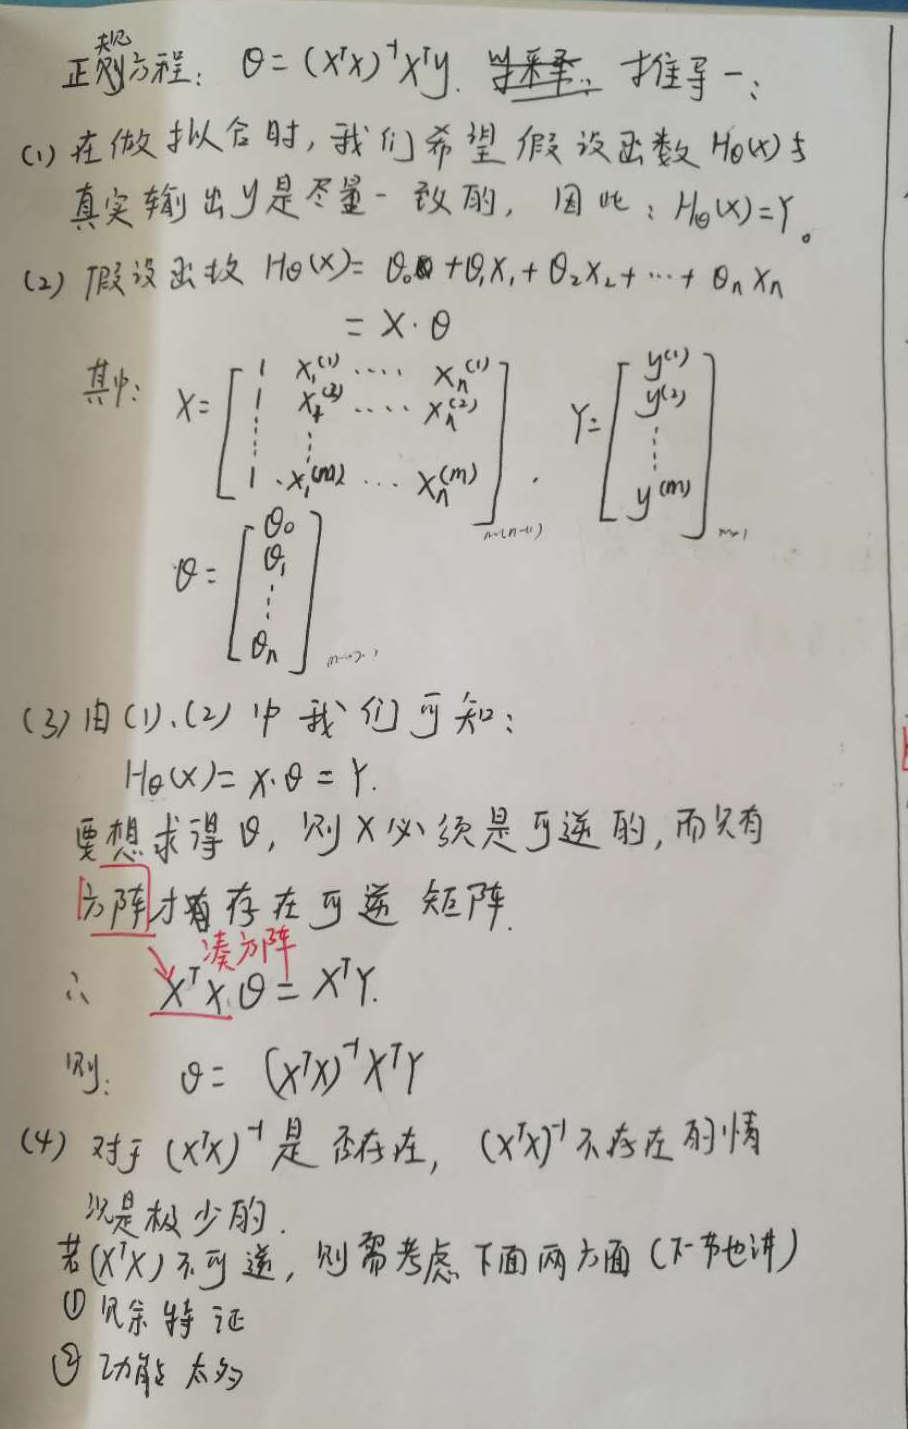 正规方程: θ=(XᵀX)⁻¹Xᵀy. 推导一:
(1) 在做拟合时,我们希望假设函数 Hθ(x)与
真实输出y是尽量一致的, 因此: Hθ(X)=Y。
(2) 假设函数 Hθ(X)= θ₀ +θ₁X₁+ θ₂X₂+ ⋯ + θₙXₙ
= X·θ
其中: X= [ 1 X₁⁽¹⁾ ···· Xₙ⁽¹⁾ Y= [ y⁽¹⁾
1 X₁⁽²⁾ ···· Xₙ⁽²⁾ y⁽²⁾
⋮ ⋮ ⋮
1 X₁⁽ᵐ⁾ ··· Xₙ⁽ᵐ⁾ ] , y⁽ᵐ⁾ ]
m×(n+1) m×1
θ= [ θ₀
θ₁
⋮
θₙ ]
(3) 由(1)、(2)中我们可知:
Hθ(X)= X·θ = Y.
要想求得θ, 则X必须是可逆的,而只有
方阵才有存在可逆矩阵.
凑方阵
∴ XᵀX·θ = XᵀY.
则: θ= (XᵀX)⁻¹XᵀY
(4) 对于 (XᵀX)⁻¹是否存在, (XᵀX)⁻¹不存在的情
况是极少的.
若(XᵀX)不可逆,则需考虑下面两方面(下一节也讲)
① 冗余特征
② 功能太多